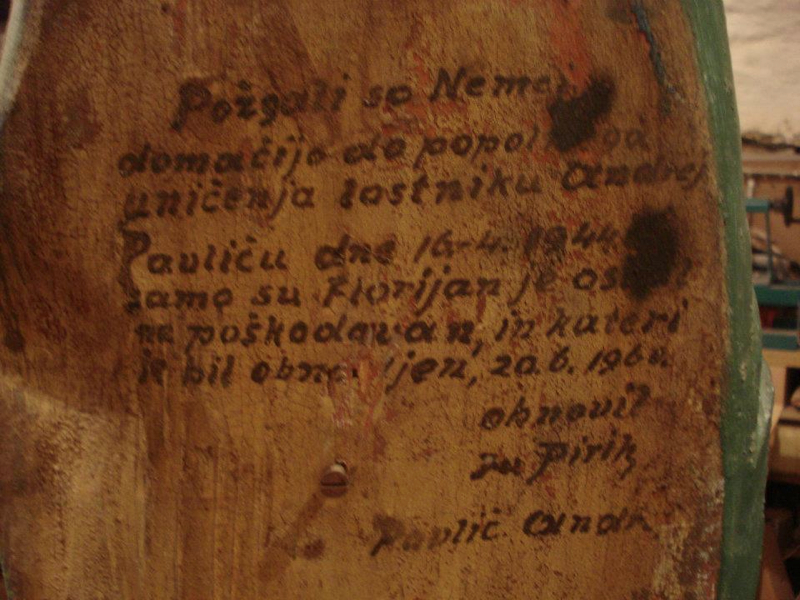 Požgali so Nemci
domačijo do popolnega
uničenja lastniku Andrej
Pavliču dne 16.4.1944.
samo sv Florijan je ostal
ne poškodovan, in kateri
je bil obnovljen, 20.6.196
obnovil
Pirih
Pavlič Andr